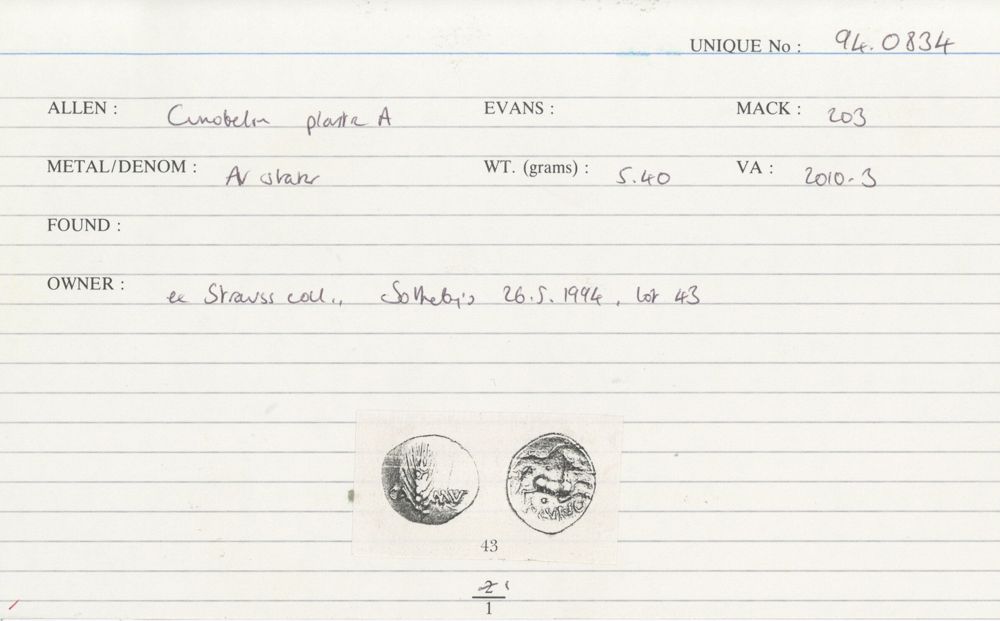 UNIQUE No : 94.0834
ALLEN : Cunobelin plastic A EVANS : MACK : 203
METAL/DENOM : AV stater WT. (grams) : 5.40 VA : 2010-3
FOUND :
OWNER : ex Strauss coll., Sotheby's 26.5.1994, lot 43
CA MV
CVNO
43
2
1